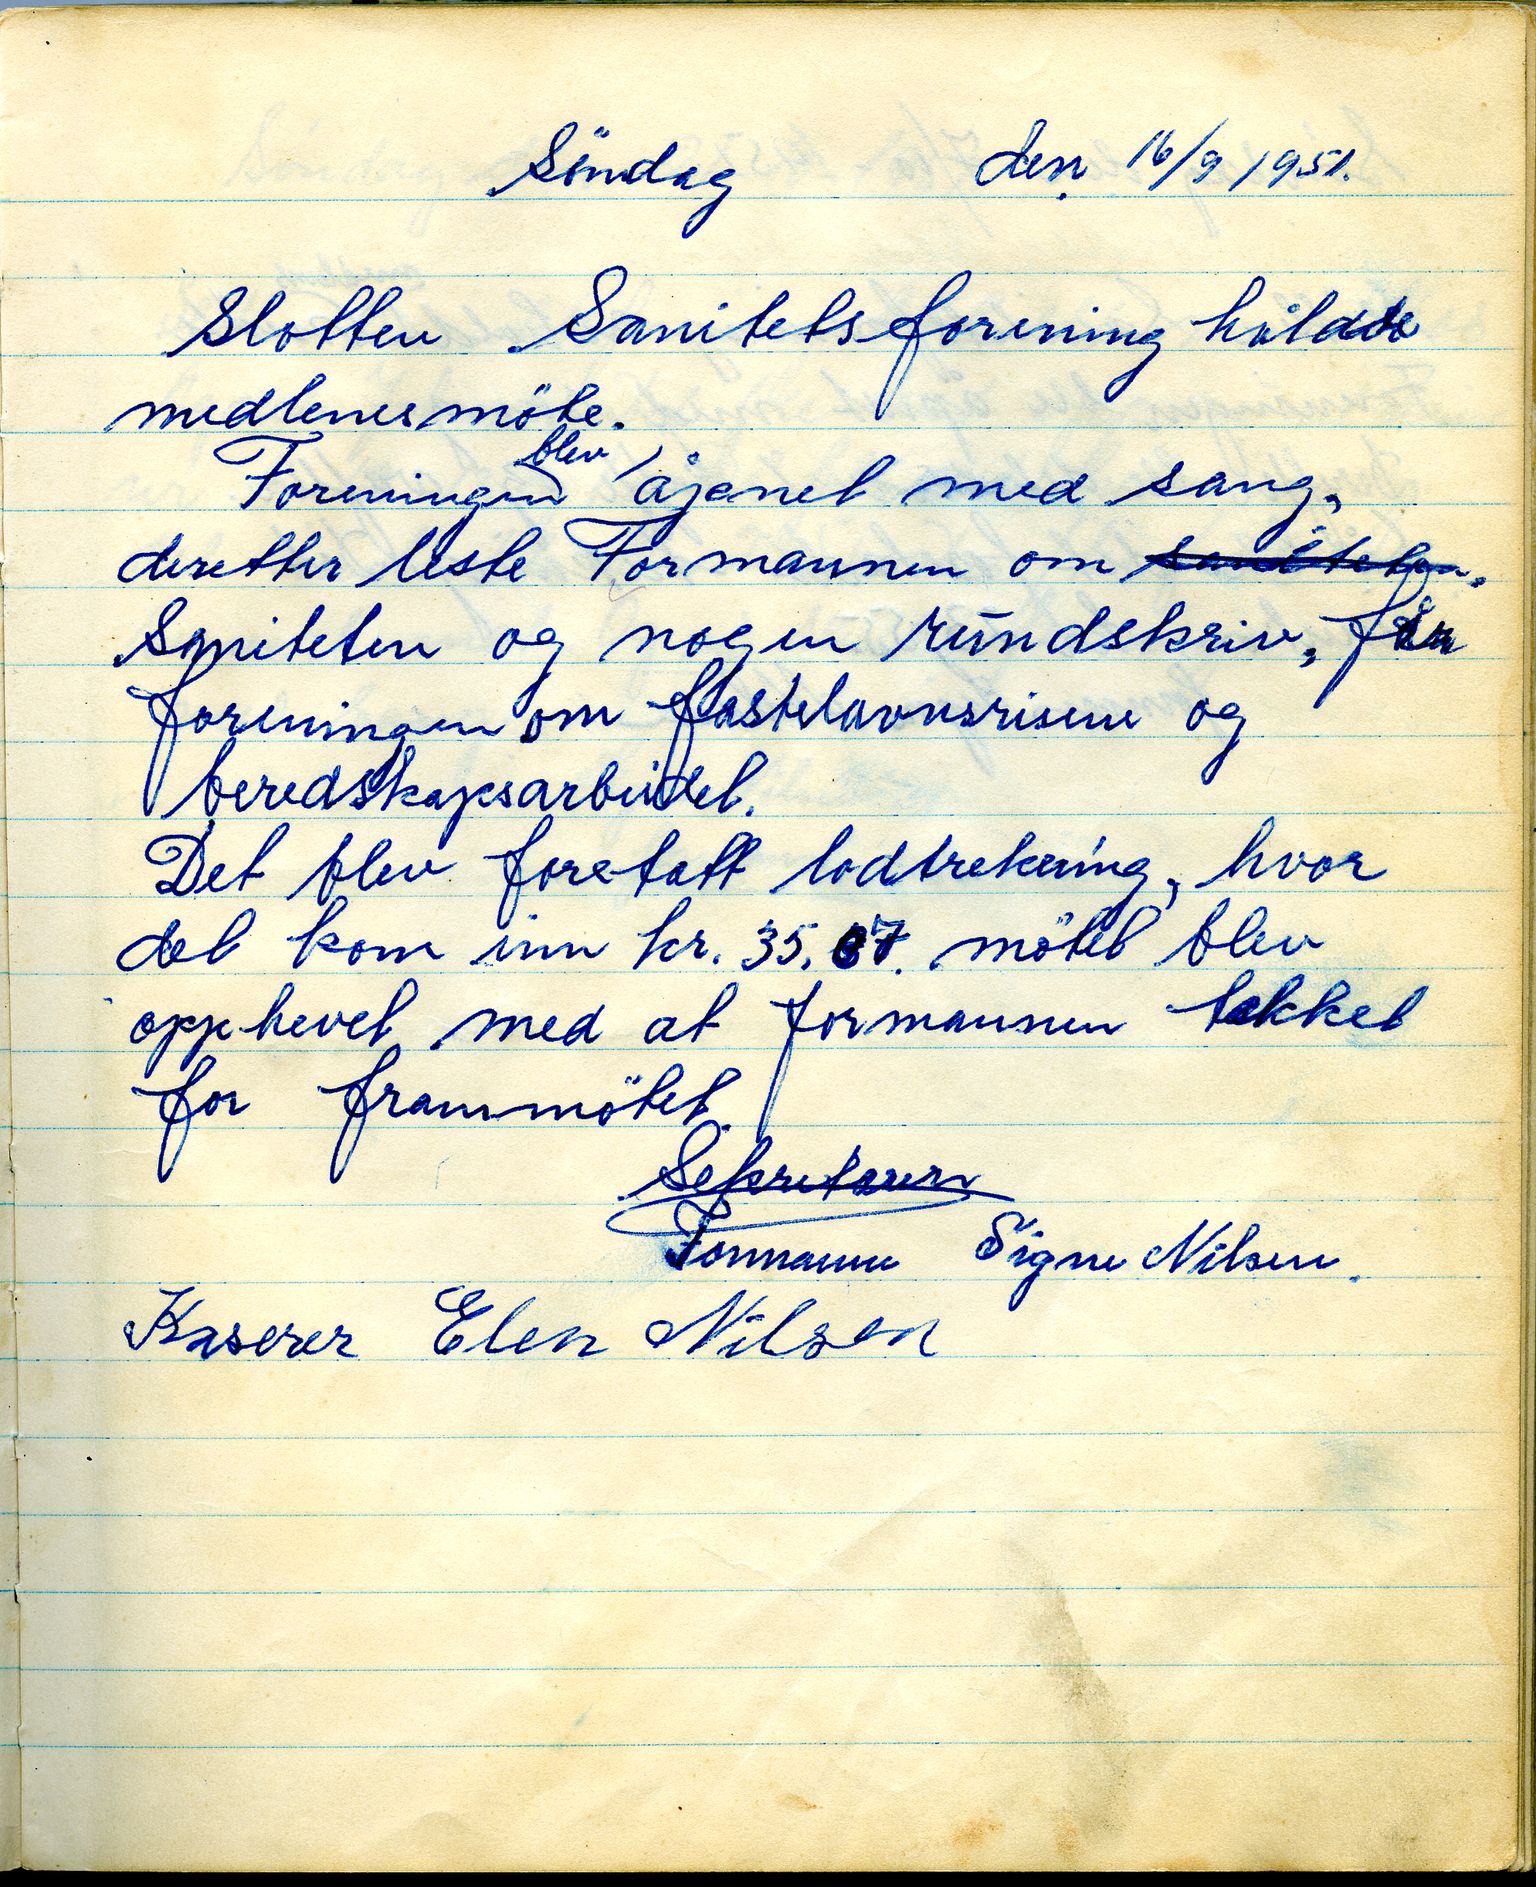 Söndag den 16/9 1951.
Slotten Sanitetsforening håldte
medlemesmöte.
Foreningen blev åpenet med sang,
deretter leste Formannen om saniteten.
Saniteten og nogen rundskriv, før
foreningen om fastelavnsrisene og
beredskapsarbeidet.
Det blev foretatt lodtrekning, hvor
det kom inn kr. 35.07. mötet blev
opphevet med at formannen takket
for frammötet.
Sekretæren
Formann Signe Nilsen.
Kaserer Elen Nilsen